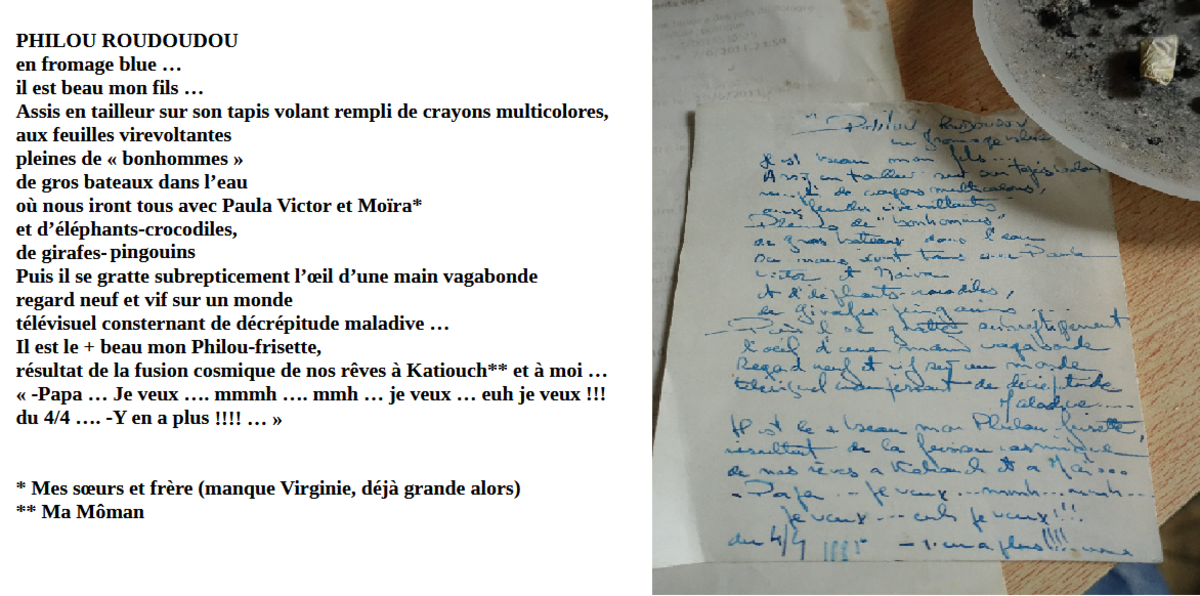 PHILOU ROUDOUDOU
en fromage blue …
il est beau mon fils …
Assis en tailleur sur son tapis volant rempli de crayons multicolores,
aux feuilles virevoltantes
pleines de « bonhommes »
de gros bateaux dans l’eau
où nous iront tous avec Paula Victor et Moïra*
et d’éléphants-crocodiles,
de girafes- pingouins
Puis il se gratte subrepticement l’œil d’une main vagabonde
regard neuf et vif sur un monde
télévisuel consternant de décrépitude maladive …
Il est le + beau mon Philou-frisette,
résultat de la fusion cosmique de nos rêves à Katiouch** et à moi …
« -Papa … Je veux …. mmmh …. mmh … je veux … euh je veux !!!
du 4/4 …. -Y en a plus !!!! … »
* Mes sœurs et frère (manque Virginie, déjà grande alors)
** Ma Môman
Philou Roudoudou
en fromage
il est beau mon fils ...
Assis en tailleur sur son tapis volant
de crayons multicolores,
aux feuilles virevoltantes
Pleines de "bonhommes"
de gros bateaux dans l'eau
où nous iront tous avec Paula
Victor et Moïra
et d'éléphants-crocodiles,
de girafes-pingouins ....
Puis il se gratte subrepticement
l'oeil d'une main vagabonde
Regard neuf et vif sur un monde
télévisuel de décrépitude
Maladive ....
Il est le + beau mon Philou-frisette,
résultat de la fusion cosmique
de nos rêves à Katiouch et à
- Papa ... je veux ... mmmh ... mmh ...
je veux ... euh je veux !!!
du 4/4 - Y en a plus !!!!